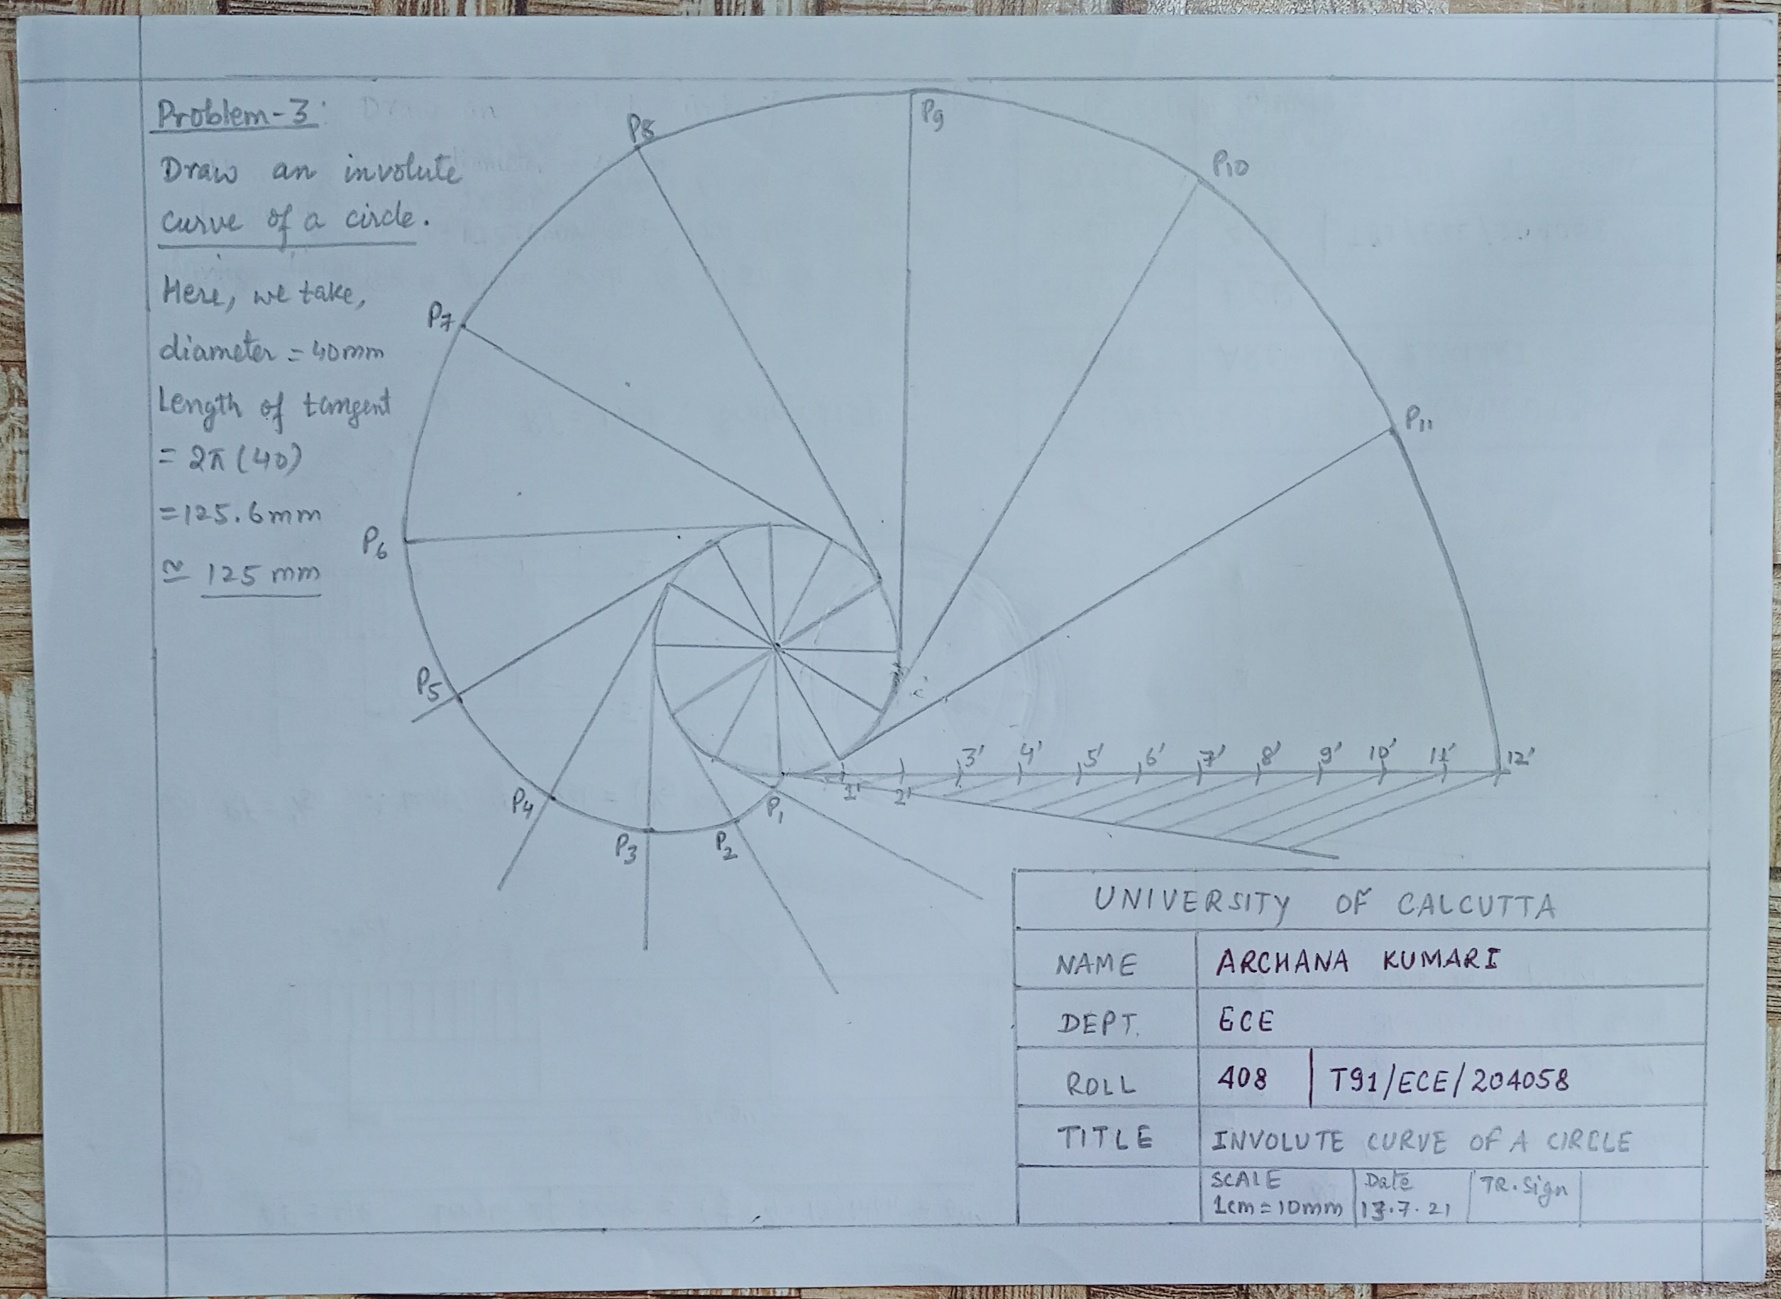 Problem-3:
Draw an involute
curve of a circle.
Here, we take,
diameter = 40mm
Length of tangent
= 2π (40)
= 125.6mm
≃ 125 mm
P8
P9
P10
P7
P11
P6
P5
P4
P3
P2
P1
1'
2'
3'
4'
5'
6'
7'
8'
9'
10'
11'
12'
UNIVERSITY OF CALCUTTA
NAME ARCHANA KUMARI
DEPT. ECE
ROLL 408 | T91/ECE/204058
TITLE INVOLUTE CURVE OF A CIRCLE
SCALE Date TR. Sign
1cm = 10mm 13.7.21